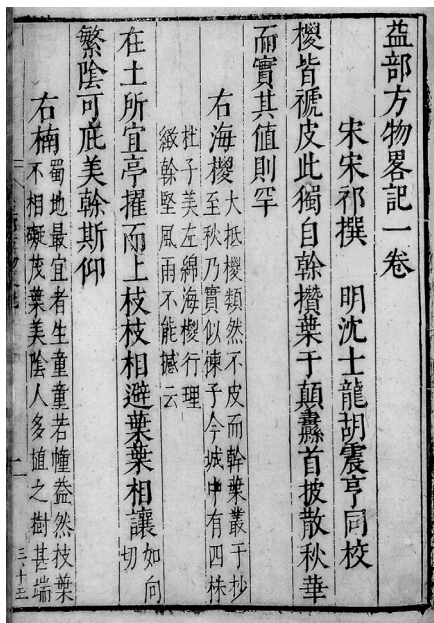 益部方物畧記一卷
宋宋祁撰 明沈士龍胡震亨同校
椶皆褫皮此獨自榦攢葉于顛纛首披散秋華
而實其值則罕
右海椶
大抵椶類然不皮而幹葉叢于杪
至秋乃實似楝子今城中有四株
杜子美左綿海椶行理
緻榦堅風雨不能撼云
在土所宜亭擢而上枝枝相避葉葉相讓
如向
切
繁陰可庇美榦斯仰
右楠
蜀地最宜者生童童若幢葢然枝葉
不相礙茂葉美陰人多植之樹甚端